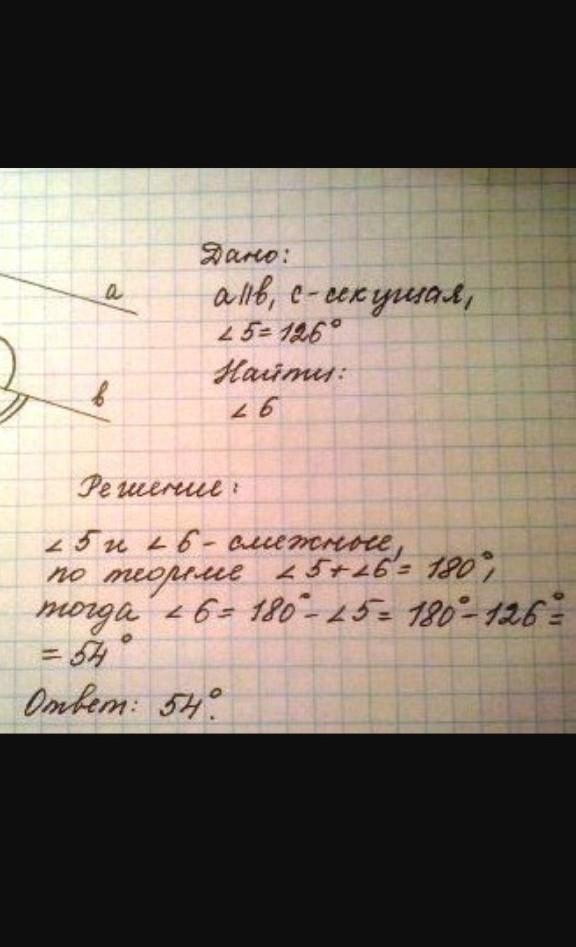 a
Дано:
a||в, с-секущая,
∠5=126°
Найти:
в
∠6
Решение:
∠5 и ∠6 - смежные,
по теореме ∠5+∠6= 180°,
тогда ∠6= 180°-∠5= 180°-126°=
= 54°
Ответ: 54°.